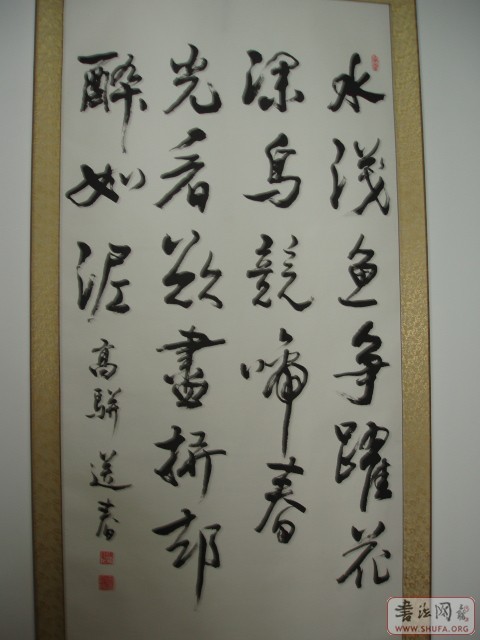 水浅魚争躍花
深鳥競啼春
光看欲盡拚却
醉如泥
高駢送春
书法网
WWW.SHUFA.ORG